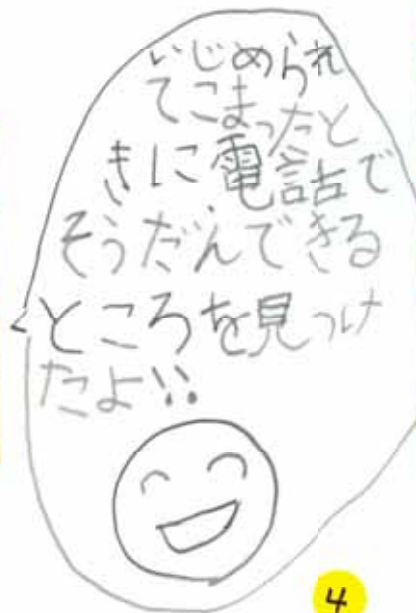 いじめられ
てこまったと
きに電話で
そうだんできる
ところを見つけ
たよ!!
4